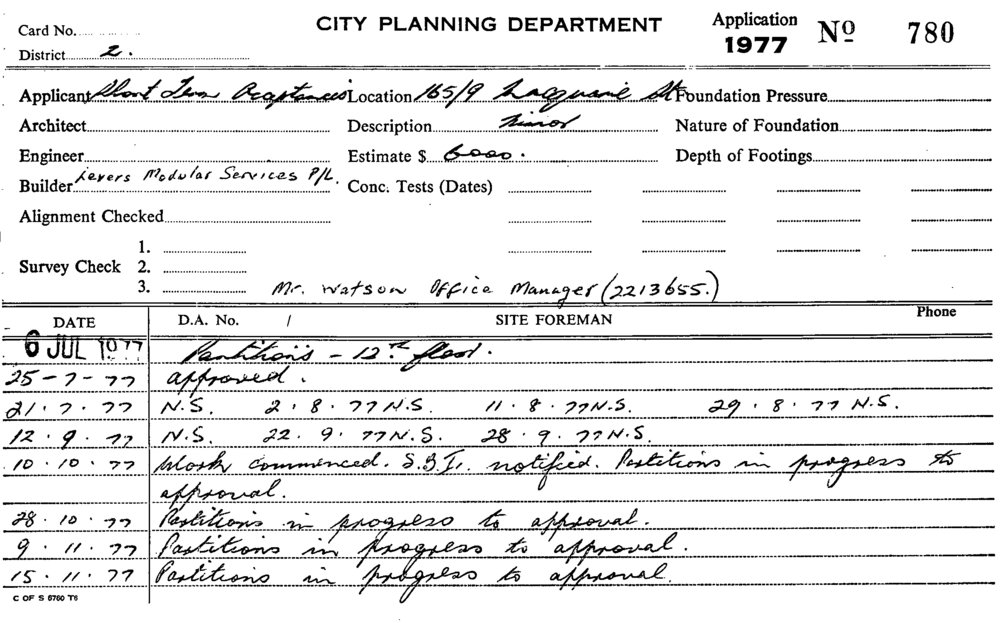 CITY PLANNING DEPARTMENT
Application
1977 Nº 780
Card No.
District 2.
Applicant Short Term Acceptances Location 165/9 Macquarie St Foundation Pressure
Architect Description Minor Nature of Foundation
Engineer Estimate $ 6000. Depth of Footings
Builder Levers Modular Services P/L. Conc. Tests (Dates)
Alignment Checked
1.
Survey Check 2.
3. Mr. Watson Office Manager (2213655.)
DATE D.A. No. / SITE FOREMAN Phone
6 JUL 1977 Partitions - 12th floor.
25-7-77 approved.
21.7.77 N.S. 2.8.77 N.S. 11.8.77 N.S. 29.8.77 N.S.
12.9.77 N.S. 22.9.77 N.S. 28.9.77 N.S.
10.10.77 Work commenced. notified. Partitions in progress to
approval.
28.10.77 Partitions in progress to approval.
9.11.77 Partitions in progress to approval.
15.11.77 Partitions in progress to approval.
C OF S 6760 T6